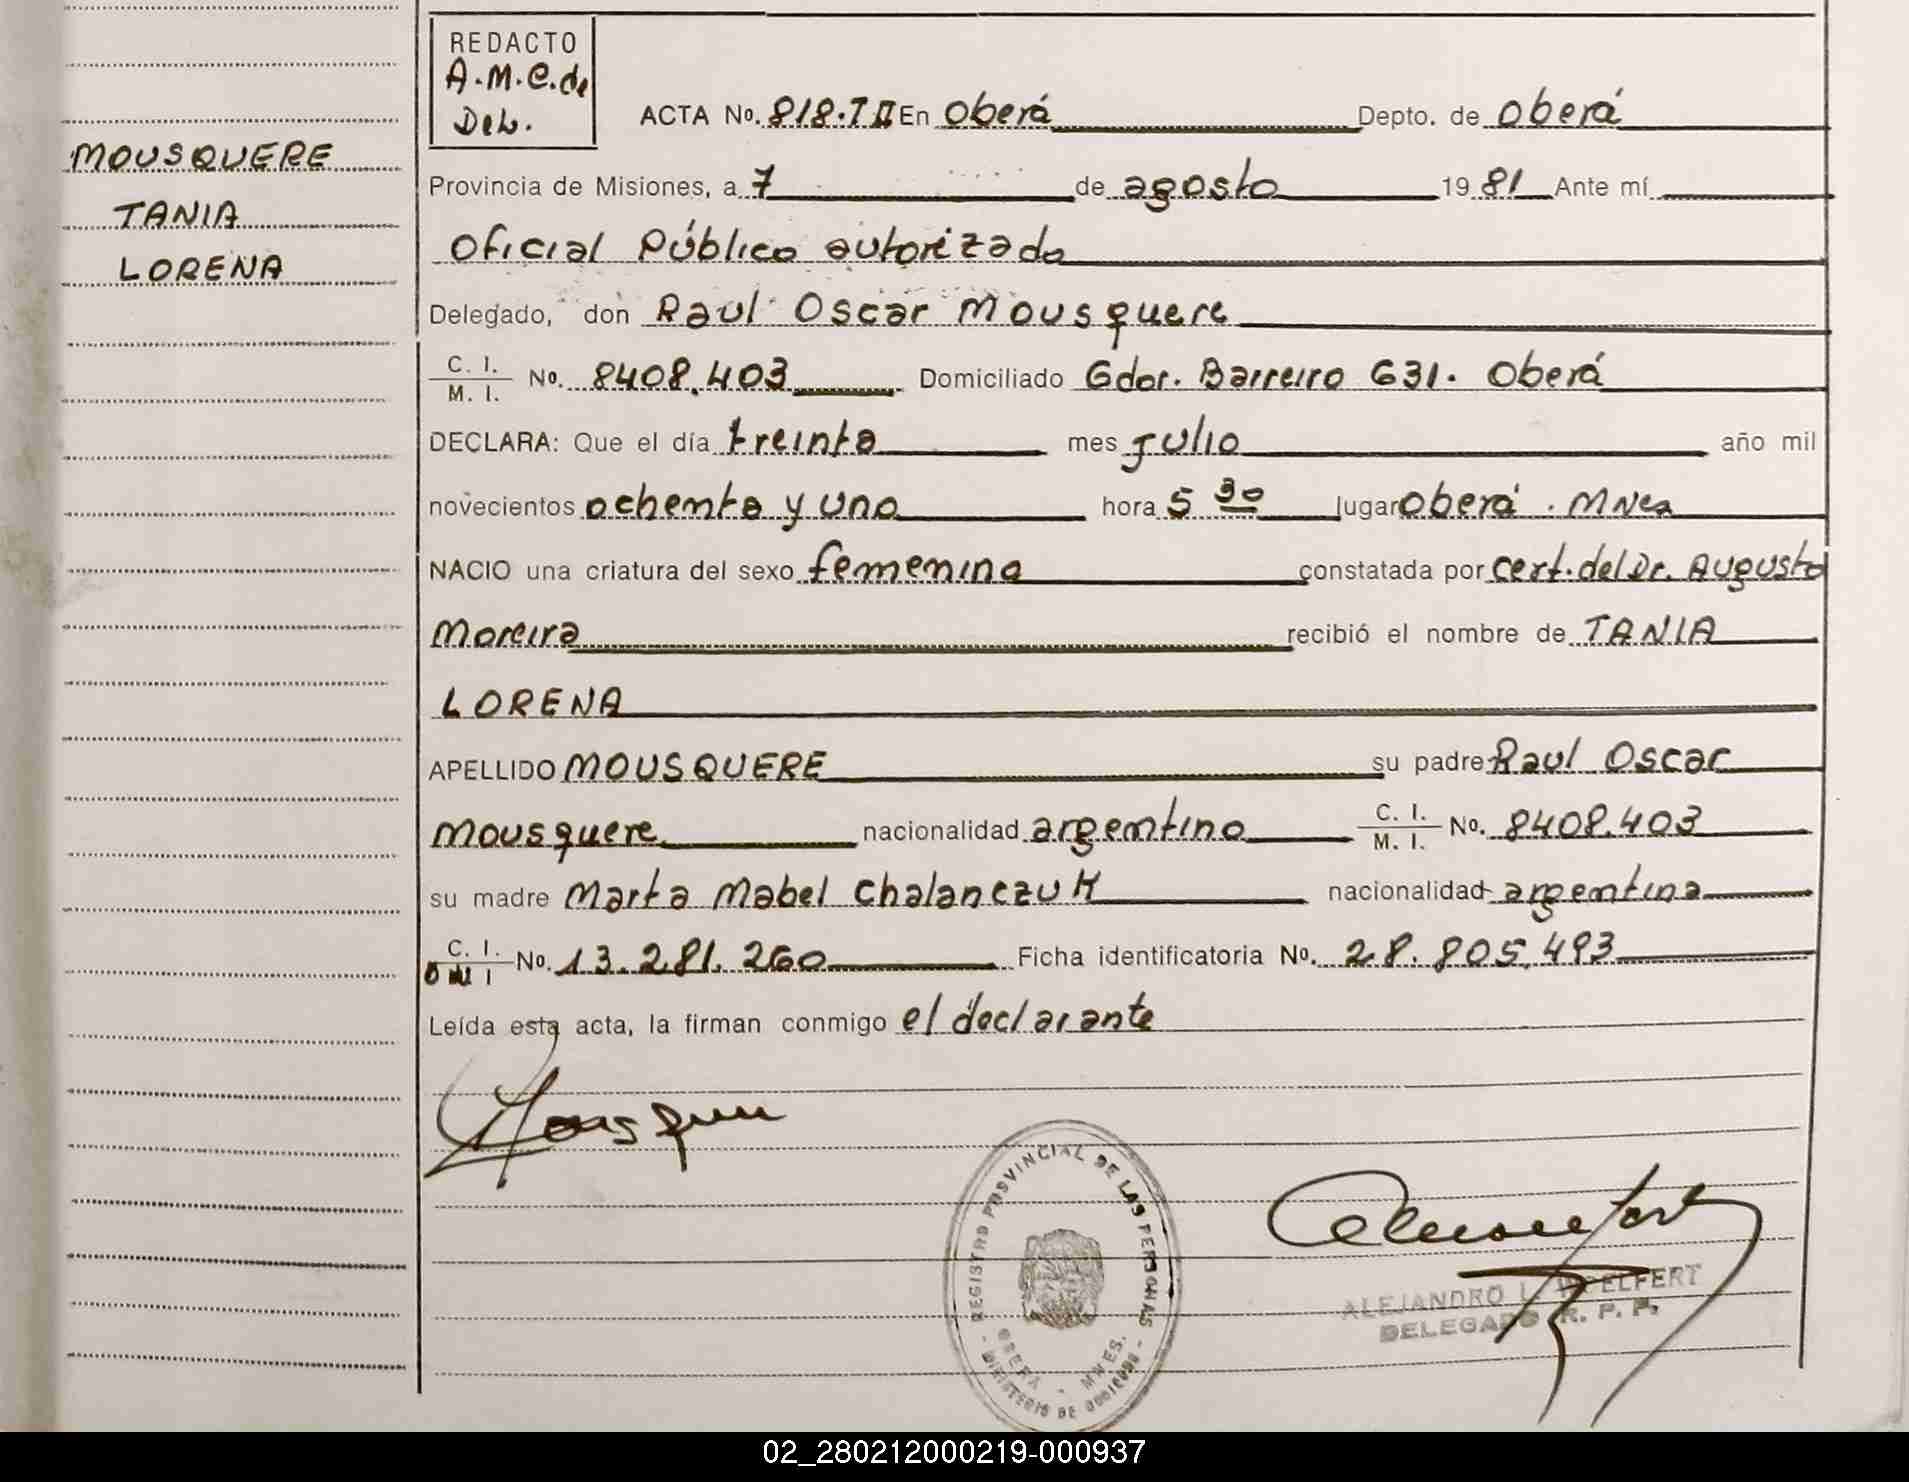 REDACTO
A.M.C. de
Del.
ACTA No. 818.T II En Oberá Depto. de Oberá
MOUSQUERE
TANIA
LORENA
Provincia de Misiones, a 7 de agosto 1981 Ante mí
Oficial Público autorizado
Delegado, don Raul Oscar Mousquere
C. I.
M. I. No. 8408.403 Domiciliado Gdor. Barreiro 631. Oberá
DECLARA: Que el día treinta mes Julio año mil
novecientos ochenta y uno hora 5 30 lugar Oberá . Mnes
NACIO una criatura del sexo femenino constatada por cert. del Dr. Augusto
Moreira recibió el nombre de TANIA
LORENA
APELLIDO MOUSQUERE su padre Raul Oscar
Mousquere nacionalidad argentino C. I.
M. I. No. 8408.403
su madre Marta Mabel Chalanczuk nacionalidad argentina
C. I.
No. 13.281.260 Ficha identificatoria No. 28.805.493
Leída esta acta, la firman conmigo el declarante
REGISTRO PROVINCIAL DE LAS PERSONAS
OBERA - MNES.
MINISTERIO DE GOBIERNO
ALEJANDRO L. WOELFERT
DELEGADO R. P. P.
02_280212000219-000937